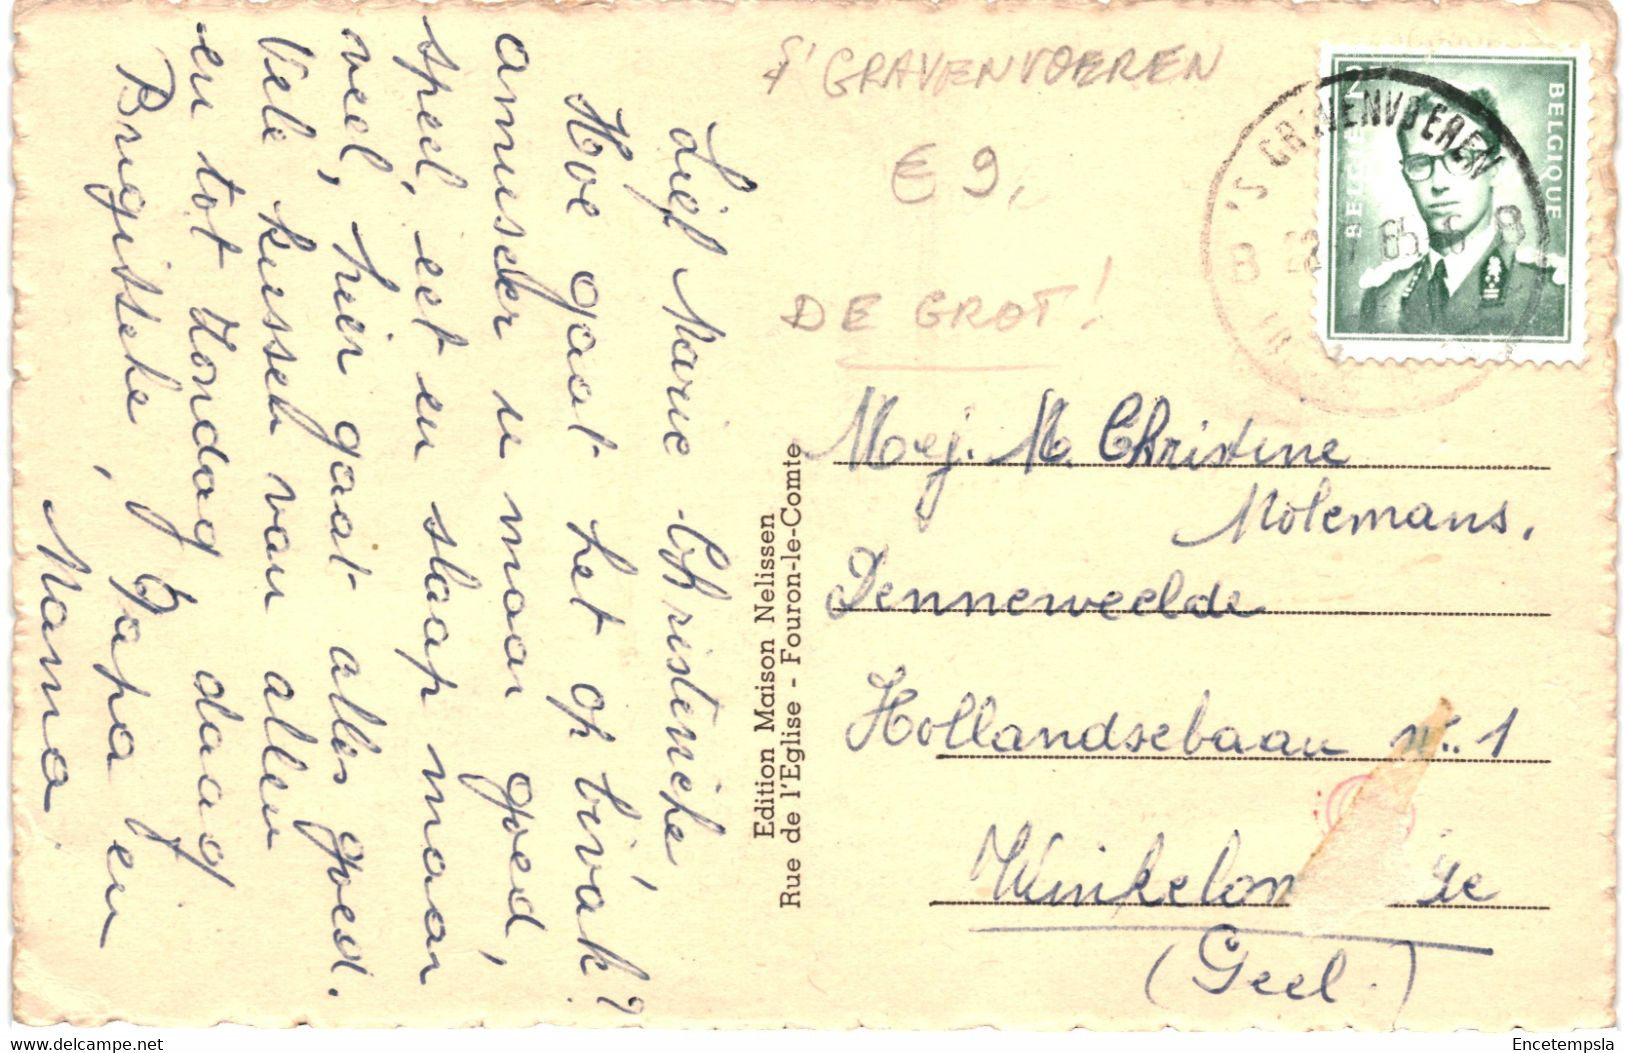 S' GRAVENVOEREN
€ 9,
DE GROT!
Lief Marie Christineke,
Hoe gaat het op bivak?
amuseer u maar goed,
speel, eet en slaap maar
veel, hier gaat alles goed.
Vele kussen van allen
en tot Zondag daag
Brugitteke, Papa en
Mama
Edition Maison Nelissen
Rue de l'Eglise - Fouron-le-Comte
BELGIE BELGIQUE
'S GRAVENVOEREN
B 65 8
Mej. M. Christine
Molemans.
Denneweelde
Hollandsebaan nr. 1
Winkelom
(Geel.)
delcampe.net
Encetempsla